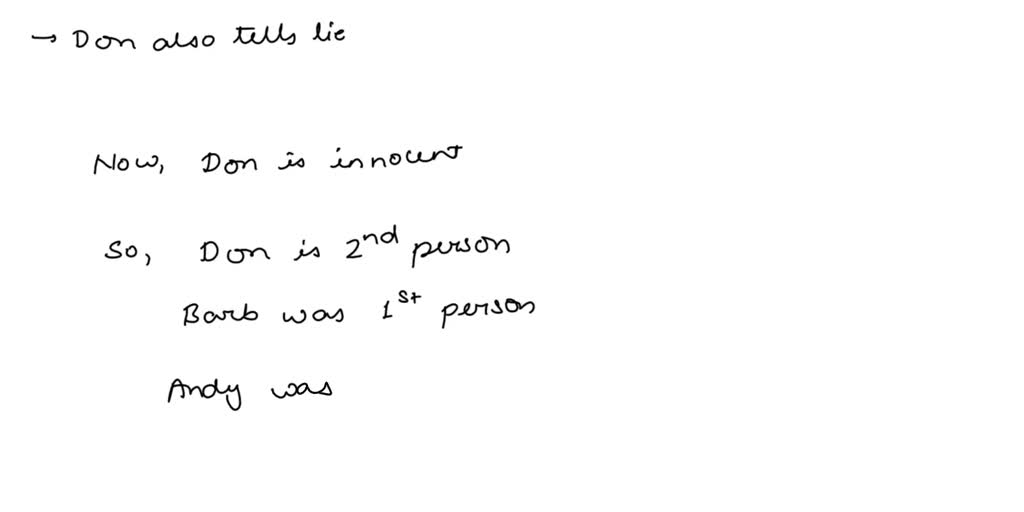 → Don also tells lie
Now, Don is innocent
So, Don is 2nd person
Barb was 1st person
Andy was